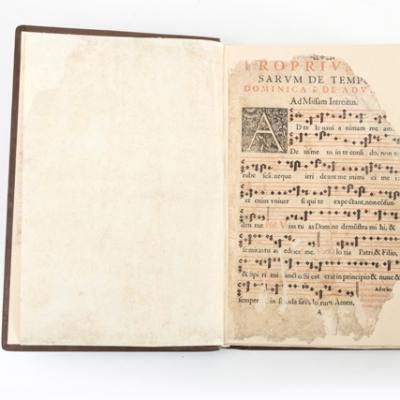 PROPRIVM
SARVM DE TEMP
DOMINICA I. DE ADV
Ad Missam Introitus.
A
D te leuaui a nimam me am:
De us me us in te confi do, non e
rube scā. neque irri de ant me inimi ci me
et enim vniuer si qui te expectant, non cōfun
den tur. Vias tu as Domine demōstra mi hi, &
semitas tu as edoce me. lo ria Patri, & Filio,
& Spi ri cut erat in principio & nunc &
semper in sæcula sæcu lo rum. Amen.
A